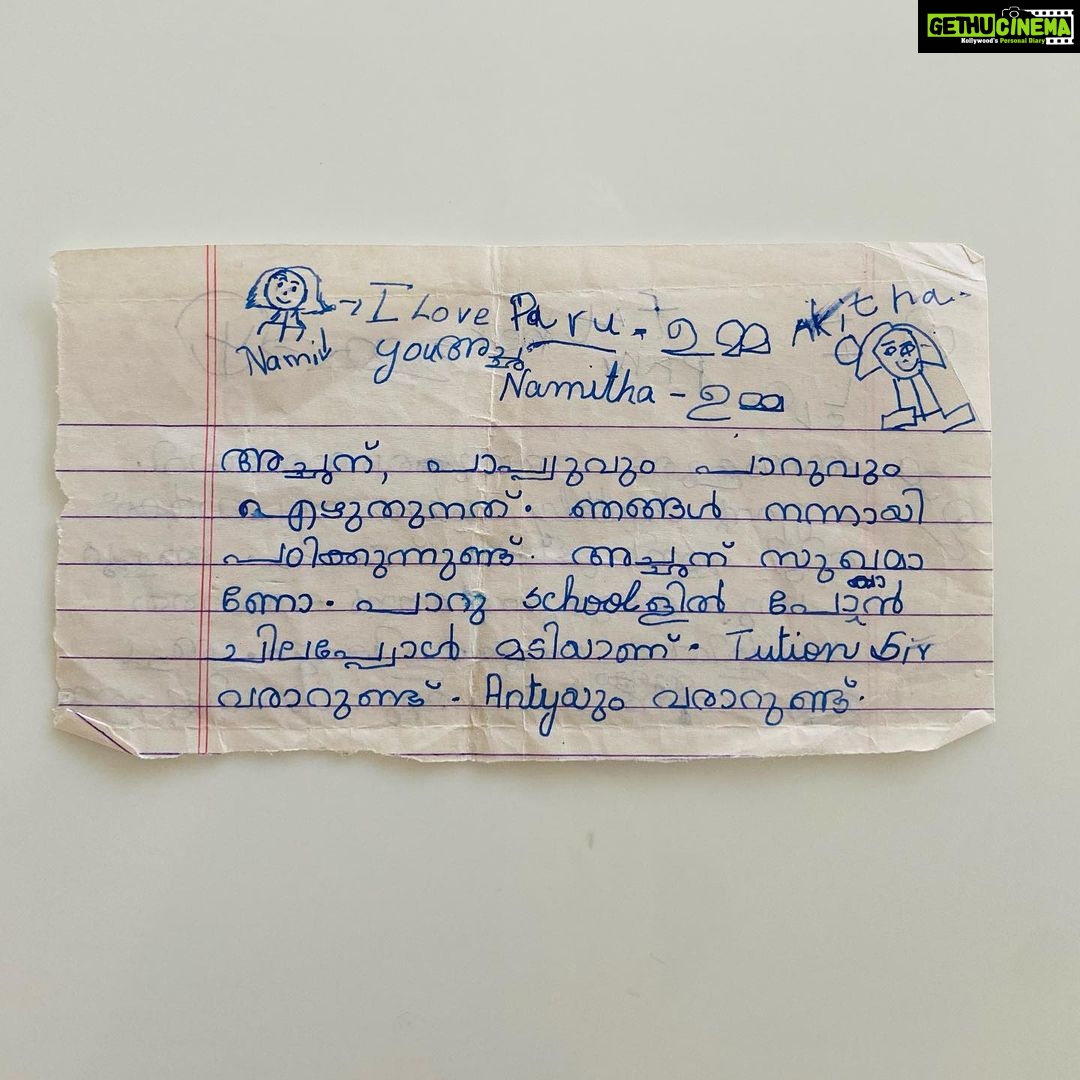 GETHUCINEMA
Kollywood's Personal Diary
I Love Paru - ഉമ്മ Akitha
Namit you അച്ഛ
Namitha - ഉമ്മ
അച്ഛന്, പാപ്പുവും പാറുവും
എഴുതുന്നത്. ഞങ്ങൾ നന്നായി
പഠിക്കുന്നുണ്ട്. അച്ഛന് സുഖമാ
ണോ. പാറു schoolളിൽ പോകാൻ
ചിലപ്പോൾ മടിയാണ്. Tution Sir
വരാറുണ്ട്. Antyയും വരാറുണ്ട്.